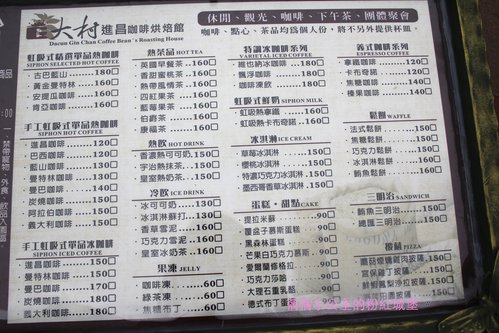 大村 進昌咖啡烘焙館
Dacun Gin Chan Coffee Bean's Roasting House
休閒、觀光、咖啡、下午茶、團體聚會
咖啡、點心、茶品均爲個人份，將不另外提供杯盤
虹吸式精選單品熱咖啡
SIPHON SELECTED HOT COFFEE
古巴藍山 180
黃金曼特林 160
安提瓜咖啡 160
肯亞咖啡 160
手工虹吸式單品熱咖啡
SIPHON HOT COFFEE
進昌咖啡 120
巴西咖啡 130
藍山咖啡 130
曼特林咖啡 130
曼巴咖啡 140
炭燒咖啡 150
阿拉伯咖啡 150
義大利咖啡 150
手工虹吸式單品冰咖啡
SIPHON ICED COFFEE
進昌咖啡 150
曼特林咖啡 150
曼巴咖啡 170
炭燒咖啡 180
義大利咖啡 180
熱茶品 HOT TEA
英國早餐茶 160
香甜蜜桃茶 160
熱帶風情茶 160
四紅果茶 160
藍莓果茶 160
伯爵茶 160
康福茶 160
熱飲 HOT DRINK
香濃熱可可 150
宇治抹茶 150
皇室熱奶茶 150
冷飲 ICE DRINK
冰可可 150
冰淇淋蘇打 130
香草雪泥 150
巧克力雪泥 150
皇室冰奶茶 150
果凍 JELLY
咖啡凍 60
綠茶凍 60
焦糖布丁 60
特調冰咖啡系列
ICED COFFEE
維也納冰咖啡 180
飄浮咖啡 180
凍飲咖啡 180
虹吸式鮮奶 SIPHON MILK
虹吸熱拿鐵 160
虹吸熱卡布奇諾 160
冰淇淋 ICE CREAM
草莓冰淇淋 150
藍莓冰淇淋 150
特濃巧克力冰淇淋 150
墨西哥香草冰淇淋 150
蛋糕‧甜點 CAKE
提拉米蘇 90
覆盆子慕斯蛋糕 90
黑森林蛋糕 90
芒果白巧克力慕斯 90
愛爾蘭修格拉 90
巧克力慕斯 90
大理石重乳酪 90
德式布丁 90
義式咖啡系列
ESPRESSO COFFEE
拿鐵咖啡
卡布奇諾
焦糖瑪琪朵
鬆餅 WAFFLE
法式鬆餅
焦糖鬆餅
草莓鬆餅
巧克力鬆餅
鮪魚鬆餅
三明治 SANDWICH
鮪魚三明治
總匯三明治
披薩 PIZZA